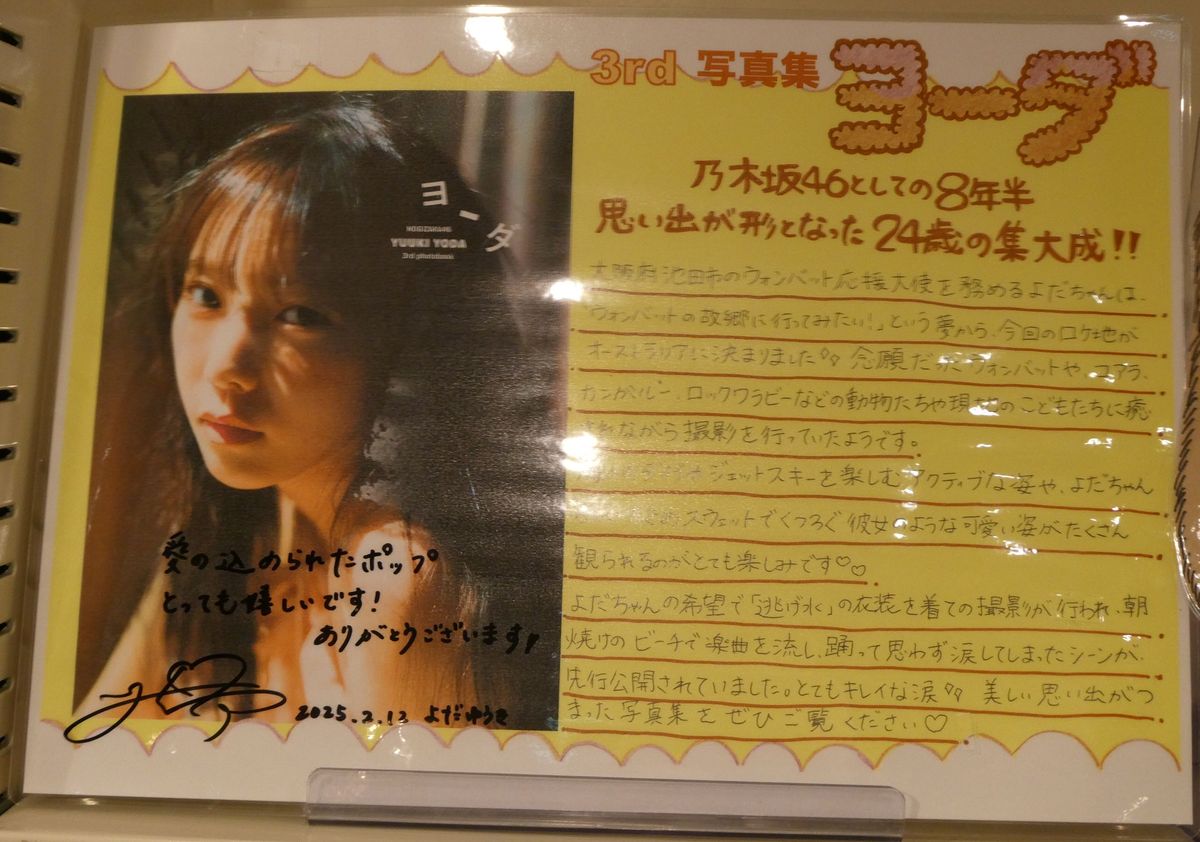 3rd 写真集 ヨーダ
乃木坂46としての8年半
思い出が形となった24歳の集大成!!
大阪府池田市のウォンバット応援大使を務めるよだちゃんは、
「ウォンバットの故郷に行ってみたい!」という夢から、今回のロケ地が
オーストラリアに決まりました 念願だったウォンバットや、コアラ、
カンガルー、ロックワラビーなどの動物たちや現地のこどもたちに癒
されながら撮影を行っていたようです。
ジェットスキーを楽しむアクティブな姿や、よだちゃん
スウェットでくつろぐ彼女のような可愛い姿がたくさん
観られるのがとても楽しみです♡♡
よだちゃんの希望で「逃げ水」の衣装を着ての撮影が行われ、朝
焼けのビーチで楽曲を流し、踊って思わず涙してしまったシーンが、
先行公開されていました。とてもキレイな涙 美しい思い出がつ
まった写真集をぜひご覧ください♡
ヨーダ
NOGIZAKA46
YUUKI YODA
3rd photobook
愛の込められたポップ
とっても嬉しいです!
ありがとうございます!
2025.2.12 よだゆうき